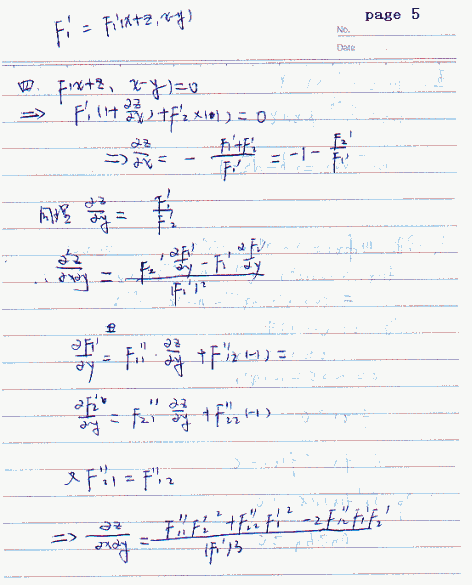 page 5
No.
Date
F₁' = F₁'(x+z, x-y)
四. F(x+z, x-y)=0
⇒ F₁'(1+∂z/∂x)+F₂'×(1)=0
⇒ ∂z/∂x = - (F₁'+F₂')/F₁' = -1 - F₂'/F₁'
同理 ∂z/∂y = F₁'/F₂'
∴ ∂²z/∂x∂y = (F₂' ∂F₁'/∂y - F₁' ∂F₂'/∂y)/(F₁')²
∂F₁'/∂y = F₁₁''·∂z/∂y + F₁₂''(-1) =
∂F₂'/∂y = F₂₁'' ∂z/∂y + F₂₂''(-1)
又 F₂₁'' = F₁₂''
⇒ ∂z/∂x∂y = (F₁₁''F₂'² + F₂₂''F₁'² - 2F₁₂''F₁'F₂')/(F₁')³